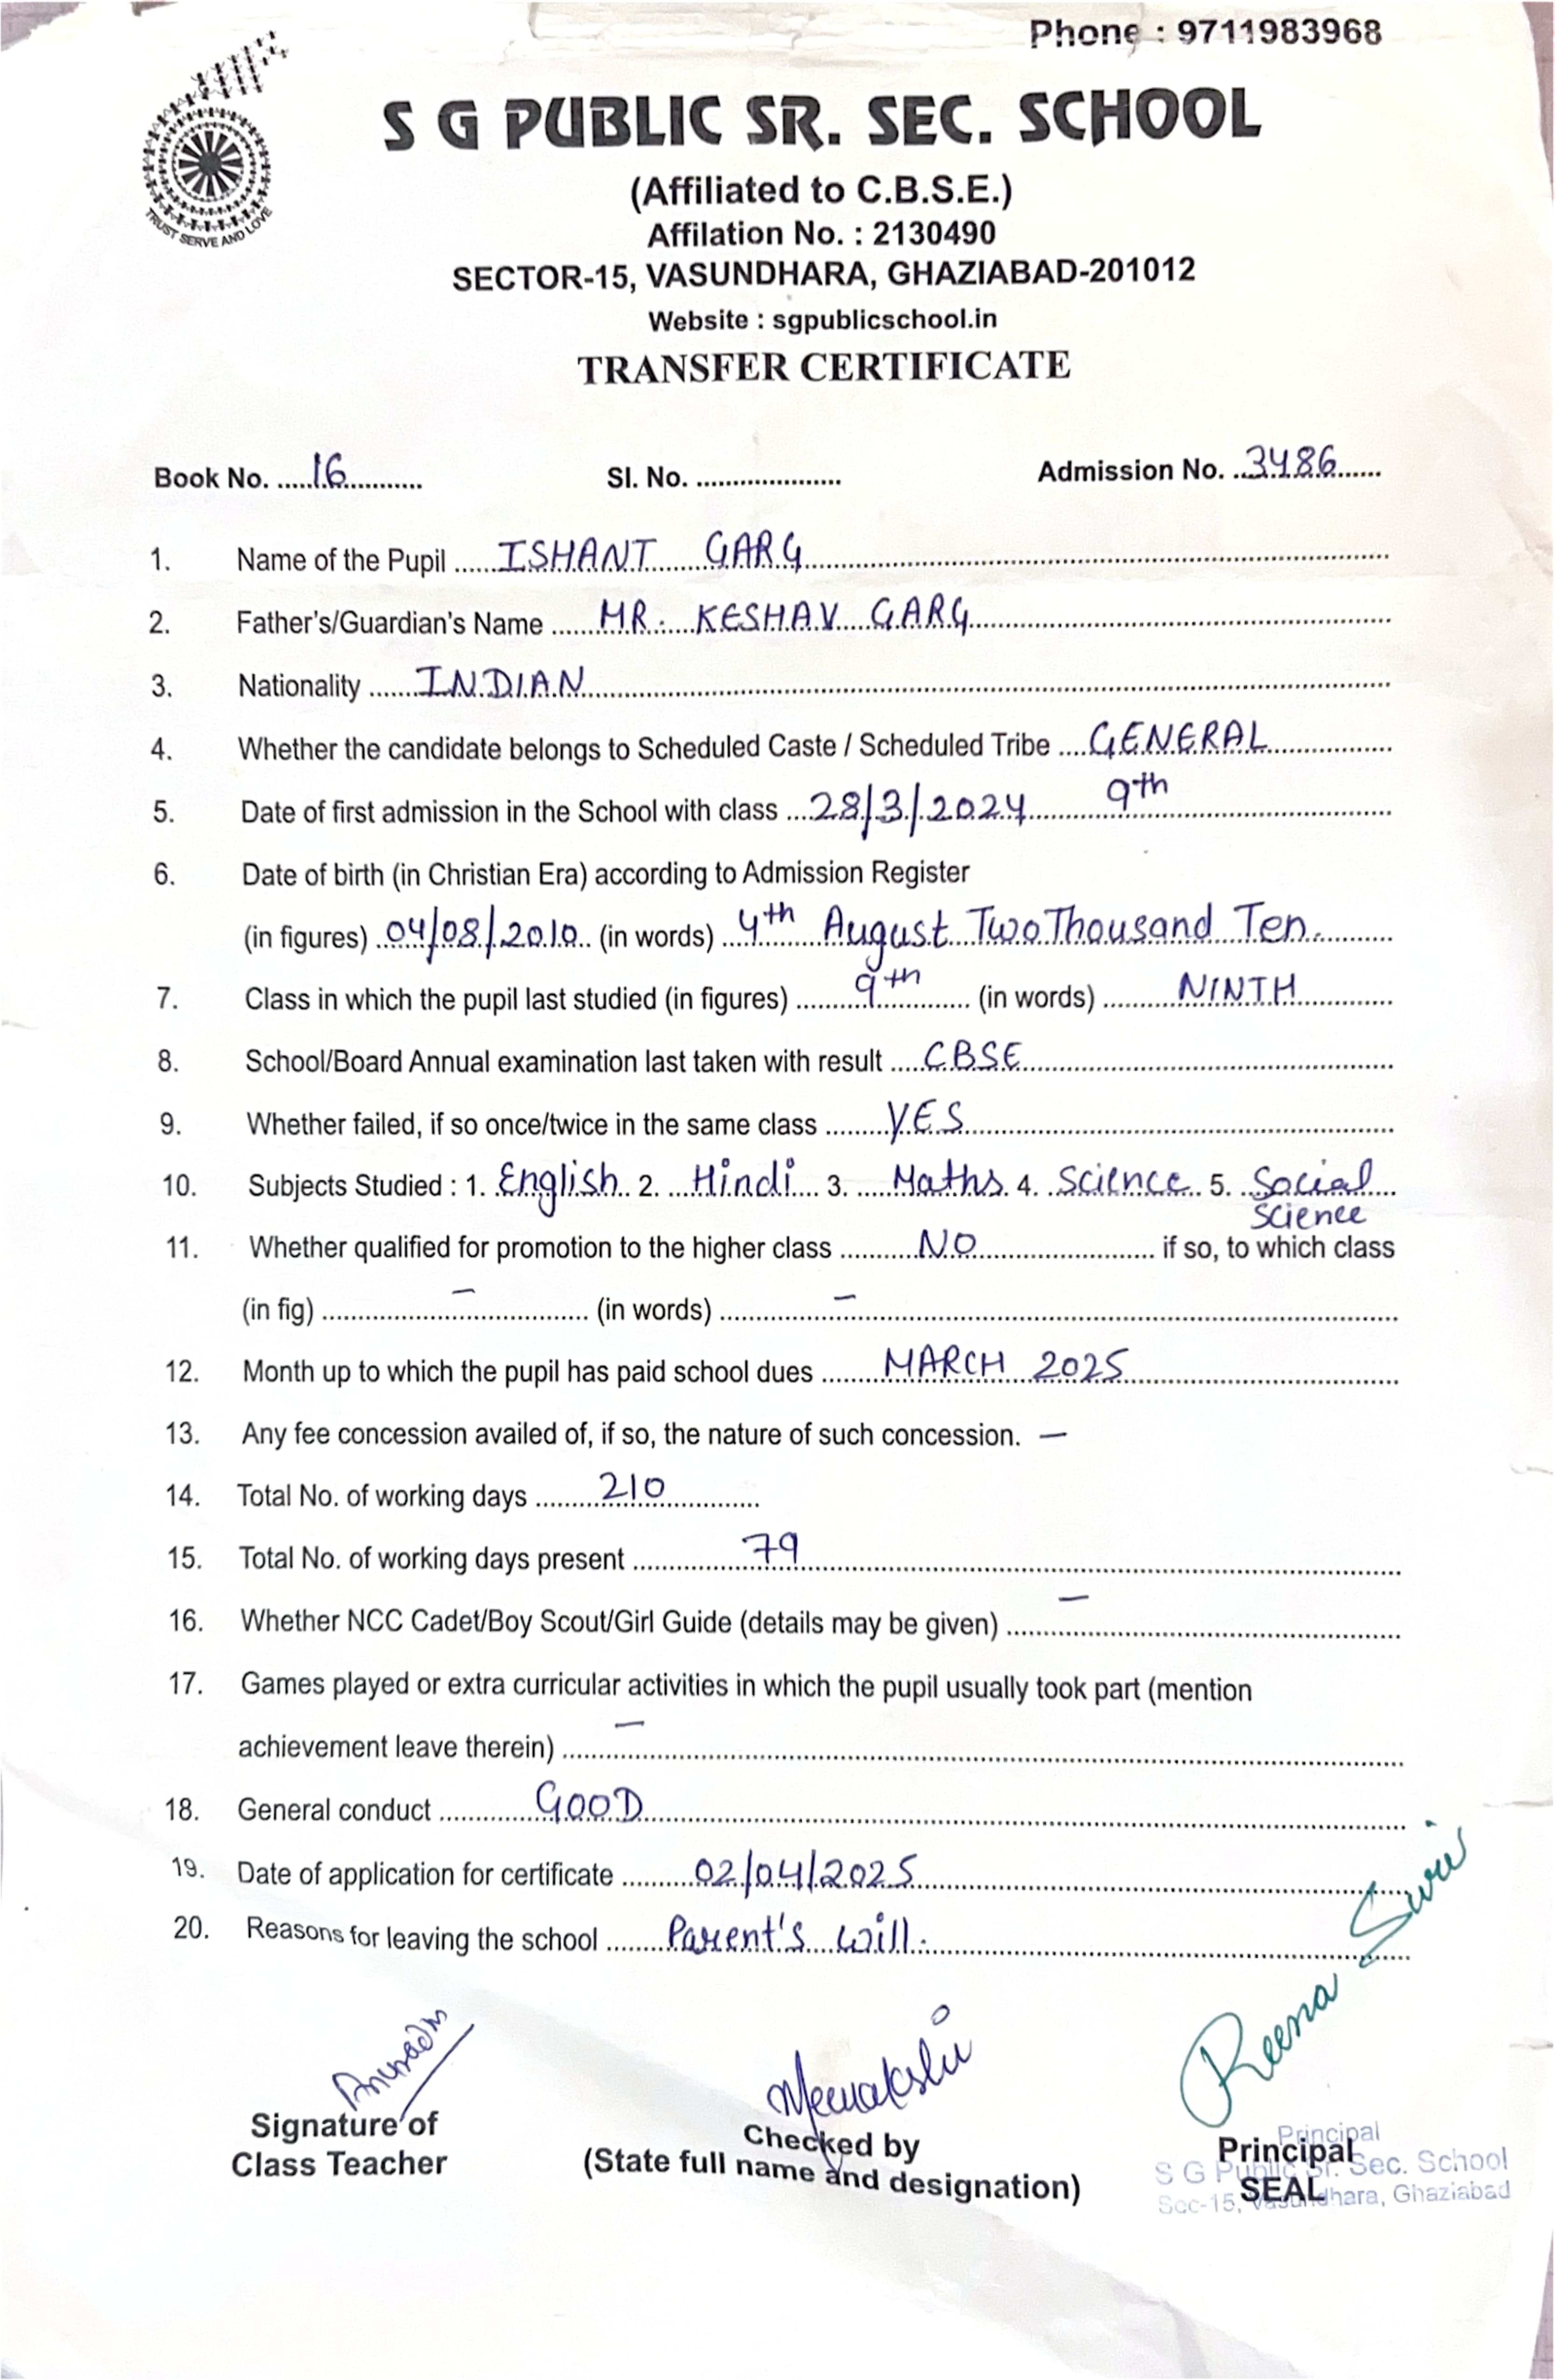 Phone : 9711983968
TRUST SERVE AND LOVE
S G PUBLIC SR. SEC. SCHOOL
(Affiliated to C.B.S.E.)
Affilation No. : 2130490
SECTOR-15, VASUNDHARA, GHAZIABAD-201012
Website : sgpublicschool.in
TRANSFER CERTIFICATE
Book No. 16 Sl. No. Admission No. 3486
1. Name of the Pupil ISHANT GARG
2. Father's/Guardian's Name MR. KESHAV GARG
3. Nationality INDIAN
4. Whether the candidate belongs to Scheduled Caste / Scheduled Tribe GENERAL
5. Date of first admission in the School with class 28/3/2024 9th
6. Date of birth (in Christian Era) according to Admission Register
(in figures) 04/08/2010 (in words) 4th August Two Thousand Ten.
7. Class in which the pupil last studied (in figures) 9th (in words) NINTH
8. School/Board Annual examination last taken with result CBSE
9. Whether failed, if so once/twice in the same class YES
10. Subjects Studied : 1. English 2. Hindi 3. Maths 4. Science 5. Social
Science
11. Whether qualified for promotion to the higher class NO if so, to which class
(in fig) – (in words) –
12. Month up to which the pupil has paid school dues MARCH 2025
13. Any fee concession availed of, if so, the nature of such concession. –
14. Total No. of working days 210
15. Total No. of working days present 79
16. Whether NCC Cadet/Boy Scout/Girl Guide (details may be given) –
17. Games played or extra curricular activities in which the pupil usually took part (mention
achievement leave therein) –
18. General conduct GOOD
19. Date of application for certificate 02/04/2025
20. Reasons for leaving the school Parent's will.
Meenakshi
Reena
Signature of
Class Teacher
Checked by
(State full name and designation)
Principal
SEAL
Principal
S G Public Sr. Sec. School
Sec-15, Vasundhara, Ghaziabad